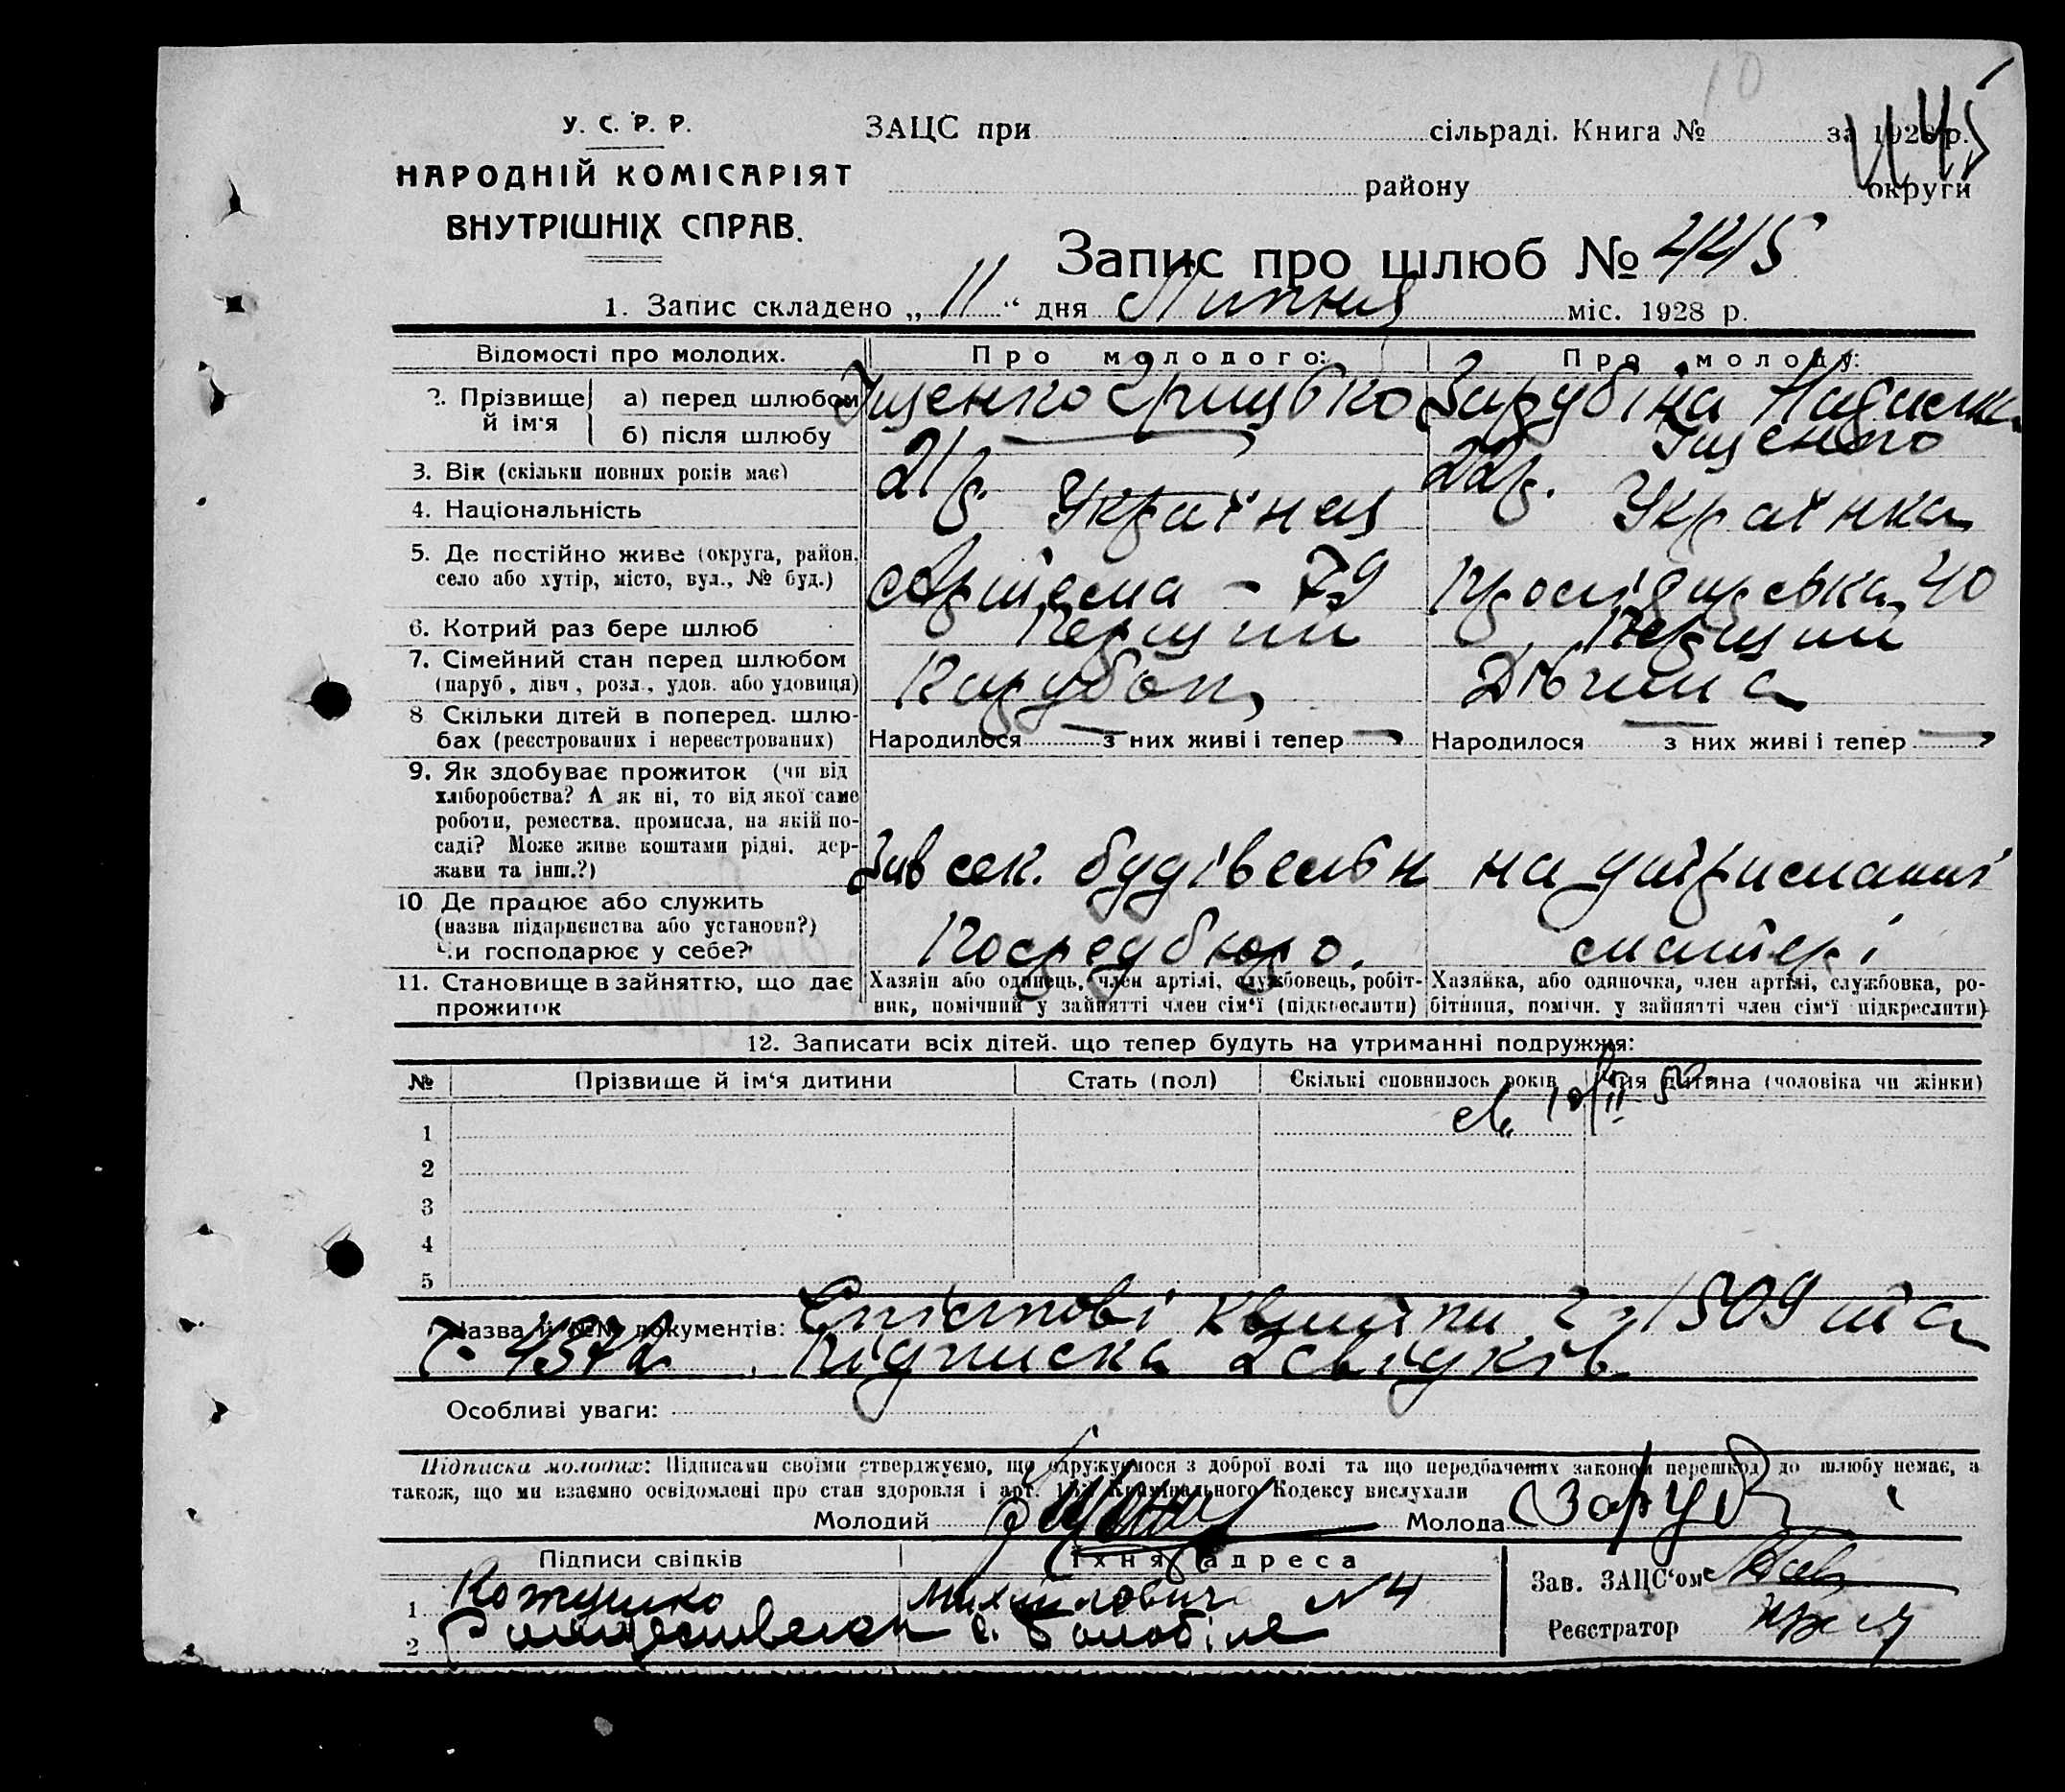 10
445
У. С. Р. Р.
НАРОДНІЙ КОМІСАРІЯТ
ВНУТРІШНІХ СПРАВ.
ЗАЦС при сільраді. Книга № за 1928 р.
району округи
Запис про шлюб № 445
1. Запис складено „ 11 “ дня Липня міс. 1928 р.
Відомості про молодих. Про молодого: Про молоду:
2. Прізвище й ім'я
а) перед шлюбом Іщенко Грицько Зарубіна
б) після шлюбу Іщенко
3. Вік (скільки повних років має) 21 р. 22 р.
4. Національність Українець Українка
5. Де постійно живе (округа, район,
село або хутір, місто, вул., № буд.) Артема - 79 40
6. Котрий раз бере шлюб Перший Перший
7. Сімейний стан перед шлюбом
(паруб., дівч., розл., удов. або удовиця) Парубок Дівчина
8 Скільки дітей в поперед. шлю-
бах (реєстрованих і нереєстрованих) Народилося — з них живі і тепер — Народилося — з них живі і тепер —
9. Як здобуває прожиток (чи від
хліборобства? А як ні, то від якої саме
роботи, ремества, промисла, на якій по-
саді? Може живе коштами рідні, дер-
жави та інш.?) Зав сек. будівельн на утриманні
10 Де працює або служить
(назва підприємства або установи?)
Чи господарює у себе? Посредбюро. матері
11. Становище в зайняттю, що дає
прожиток
Хазяін або одинець, член артілі, службовець, робіт-
ник, помічний у зайнятті член сім'ї (підкреслити)
Хазяйка, або одиночка, член артілі, службовка, ро-
бітниця, помічн. у зайнятті член сім'ї підкреслити)
12. Записати всіх дітей, що тепер будуть на утриманні подружжя:
№ Прізвище й ім'я дитини Стать (пол) Скількі сповнилось років Чия дитина (чоловіка чи жінки)
1
2
3
4
5
Назва й №№ документів: квитки 1509 та
4372 Підписка 2 свідків
Особливі уваги:
Підписка молодих: Підписами своїми стверджуємо, що одружуємося з доброї волі та що передбачених законом перешкод до шлюбу немає, а
також, що ми взаємно освідомлені про стан здоровля і арт. Кримінального Кодексу вислухали
Молодий Молода Заруб
Підписи свідків Їхня адреса
1 Кожушко № 4
2
Зав. ЗАЦС'ом
Реєстратор